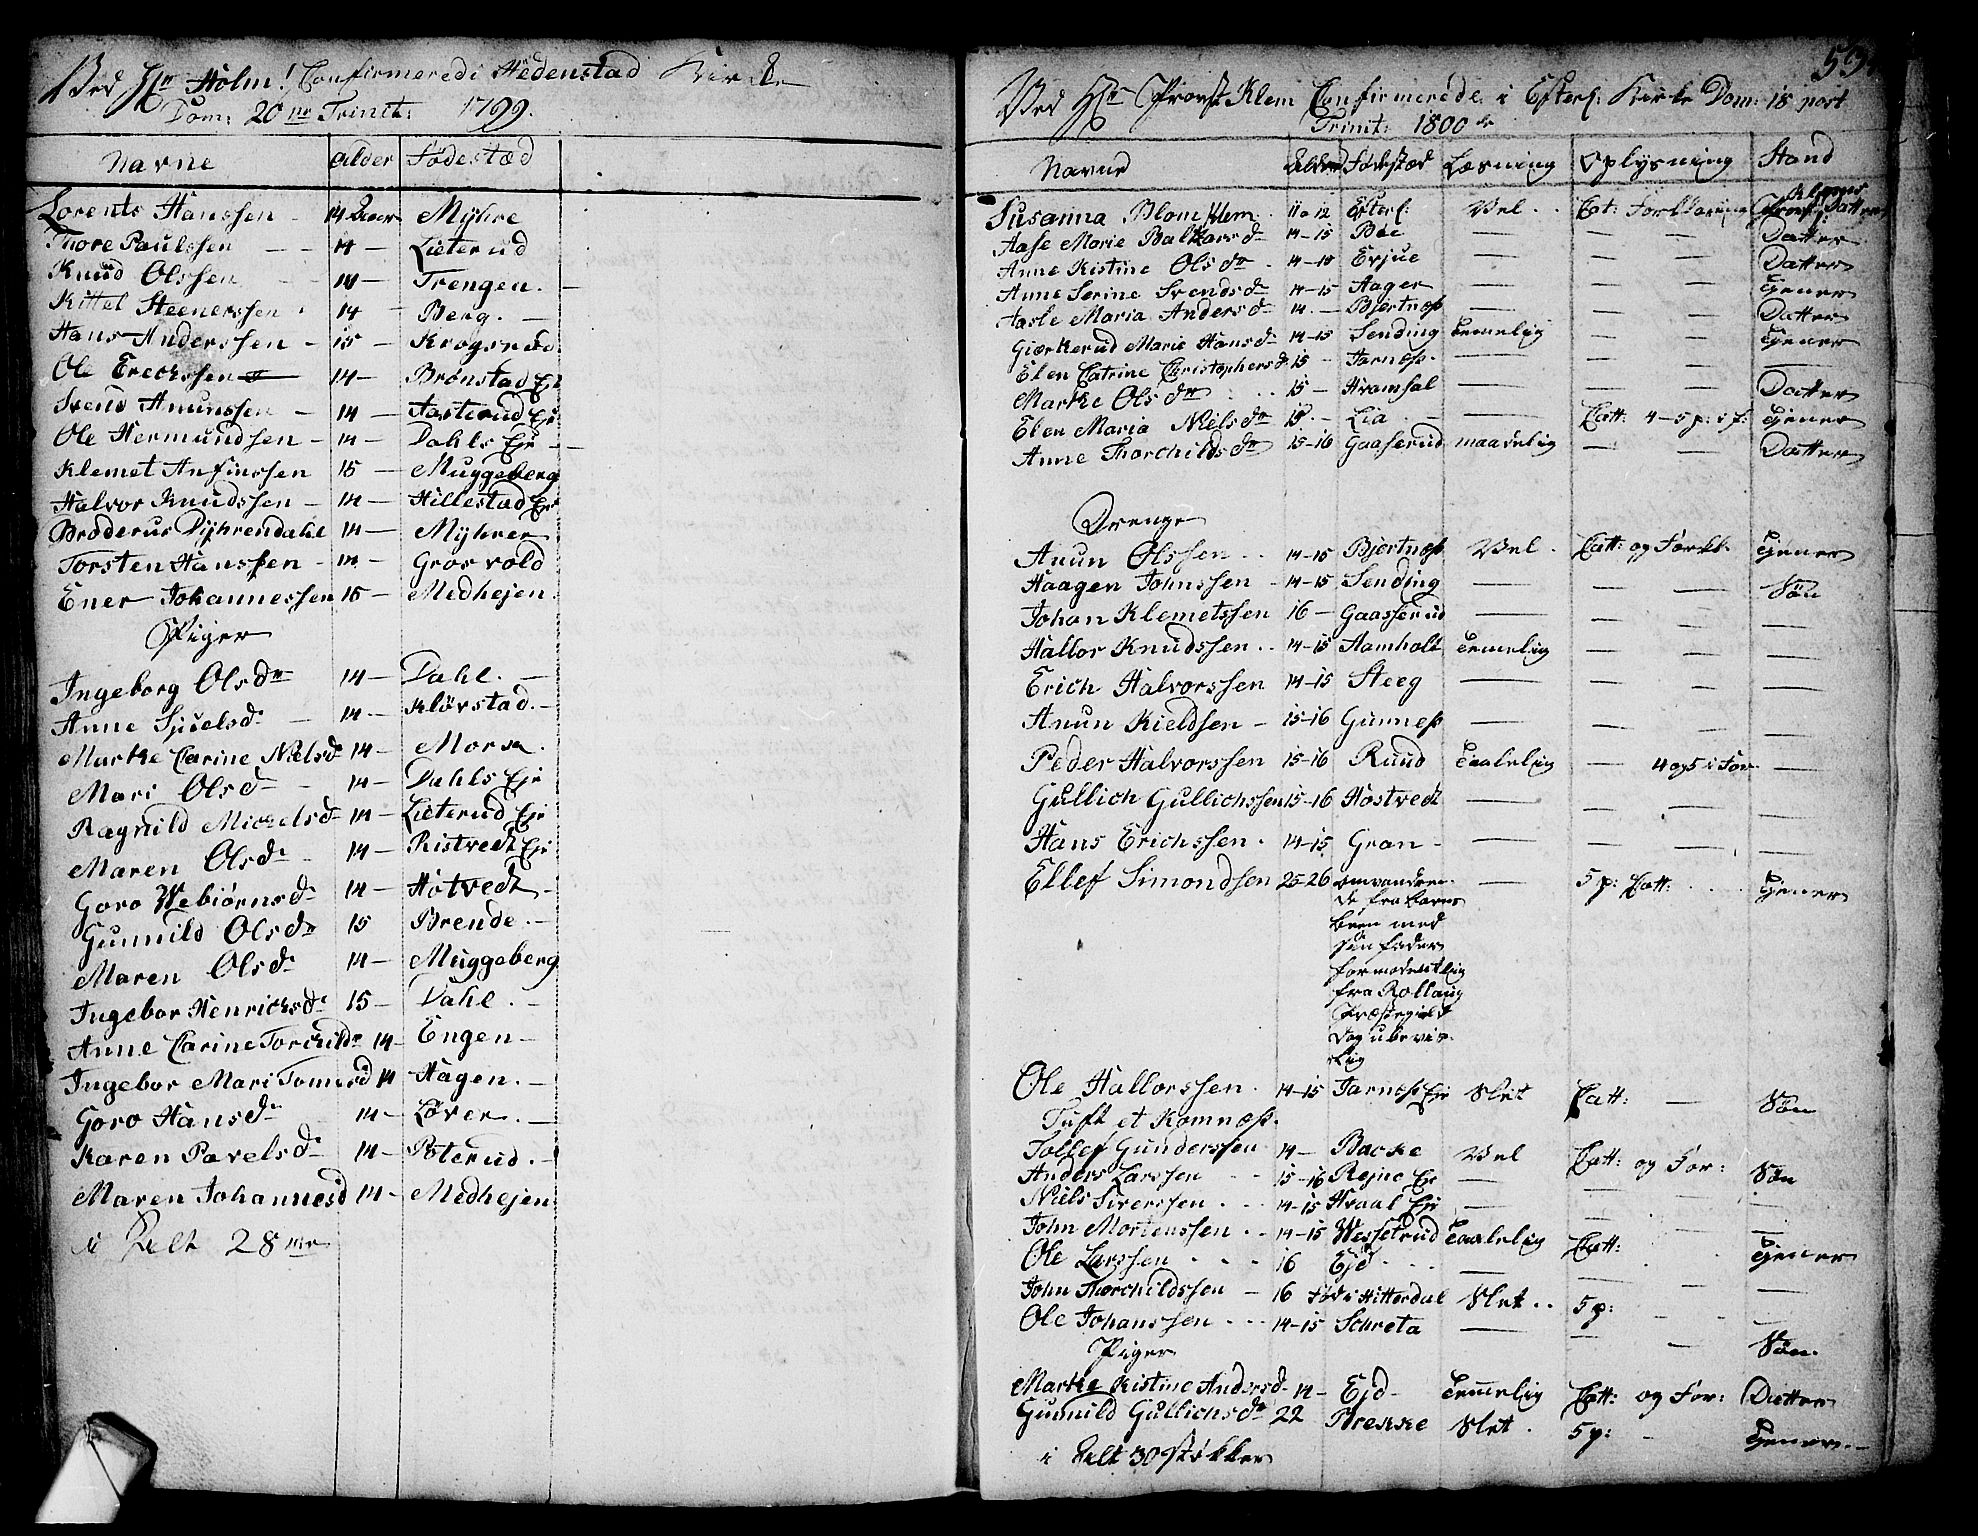 Ved Hr Holm! Confirmerede i Hedenstad Kirke
Dom: 20 ne Trinit: 1799.
Navne alder Fødestæd
Lorents Hanssen - 14 Myhre
Thore Paulssen - - 14 - Lieterud
Knud Olssen - - 14 - Trengen. -
Kittel Steenerssen . 14 - Berg. -
Hans Anderssen - 15 - Krogsrud
Ole Erechssen 14 - Brønstad Eje
Svend Anunssen - 14 - Aasterud Eje
Ole Hermundsen - 14 - Dahls Eje -
Klemet Anfinssen 15 - Muggeberg
Halvor Knudssen - 14 - Hillestad Eje
Broderus Dyhrendahl 14 - Myhrer
Torsten Hanssen - 14 - Grosvold
Ener Johannessen 15 - Medhejen
Piger
Ingeborg Olsdr 14 - Dahl. -
Anne Sjuelsdr - 14 - Kløvstad. -
Marke Carine Nielsd 14 - Morsa
Mari Olsdr - 14 - Dahls Eje
Ragnild Michelsdr 14 - Lieterud Eje
Maren Olsdr - 14 - Ristvedt Eje
Goro Webiørnsdr 14 - Hotvedt -
Gunnild Olsdr 15 Brende. -
Maren Olsdr 14 - Muggeberg
Ingebor Henrichsdr 15 - Dahl. -
Anne Carine Torchildr 14 - Engen -
Ingebor Mari Tomesd 14 Hagen. -
Goro Hansdr 14 - Løver. -
Karen Pavelsdr 14 - Poterud. -
Maren Johannesd 14 - Medhejen
i Alt 28 ve
594
Ved Hr Provst Klem Confirmerede i Efterl: Kirke Dom: 18 post
Trinit: 1800 de
Navne Alder Fødestæd Læsning Oplysning Stand
Susanna Blom Klem. 11 a 12 Efterl: Vel. . Cat: Forklaring Provst Klems Datter
Aase Marie Baltzarsdr 14-15 Boe - - - Datter
Anne Kistine Olsdr . 14-18 Erjue - - - Datter
Anne Serine Svendsdr 14-15 Aager - - - Tjener
Aasle Maria Andersdr 14. - Bjertness - - - Datter
Giærkerud Marie Hansd 14-15 Sending Temmelig - - Tjener
Elen Catrine Christophersd 15 - Jarness. - - - -
Marke Olsdr . . . 15 - Hvamsal - - - Datter
Elen Maria Nielsdr 15. - Lia . - - Catt: 4-5 p: i f: Tjener
Anne Thorchildsdr 15-16 Gaaserud maadelig - - Datter
Drenge
Anun Olssen . . 14-15 Bjertness Vel . Catt: og Forkl. Tjener
Haagen Johnssen - 14-15 Sending - - - Søn
Johan Klemetssen 16 - Gaasserud - - - -
Hallor Knudssen . . 14-15 Hamholt Temmelig - - -
Erich Halvorssen 14-15 Steeg - - - -
Anun Kieldsen - 15-16 Gunness - - - -
Peder Halvorssen 15-16 Ruud Taalelig - 4 og 5 i For. -
Gullich Gullichssen 15-16 Hostvedt - - - -
Hans Erichssen . 14-15 Gran - - - - -
Ellef Simondsen 25-26 omvandren- - 5 p: Catt: . . . Tjener
de fra barns
been med
sin fader
formodentlig
fra Rollaug
Præstegield
dog ubevis-
lig
Ole Hallorssen . 14-15 Jarness Eje Slet Catt: - Søn
Tuft et Komness.
Tollef Gunderssen 14 - Backe Vel Catt: og For: Søn
Anders Larssen - - 15-16 Rejne Eje - - - -
Niels Siverssen . . . 14-15 Hvaal Eje - - - -
John Mortenssen . . 14-15 Wessetrud Taalelig Catt: . Tjener
Ole Larssen . . . . 16 Ejd . . . - - - -
John Thorchildssen - 16 Fød i Hitterdal Slet . . 5 p: - - -
Ole Johanssen . . . 14-15 Schreta - - - Søn
Piger
Marke Kistine Andersd. 14 - Ejd - Temmelig Catt: og For: Datter
Gunnild Gullichsdr 22 Brekke Slet . 5 p: - Tjener. -
i Alt 30 Støkker